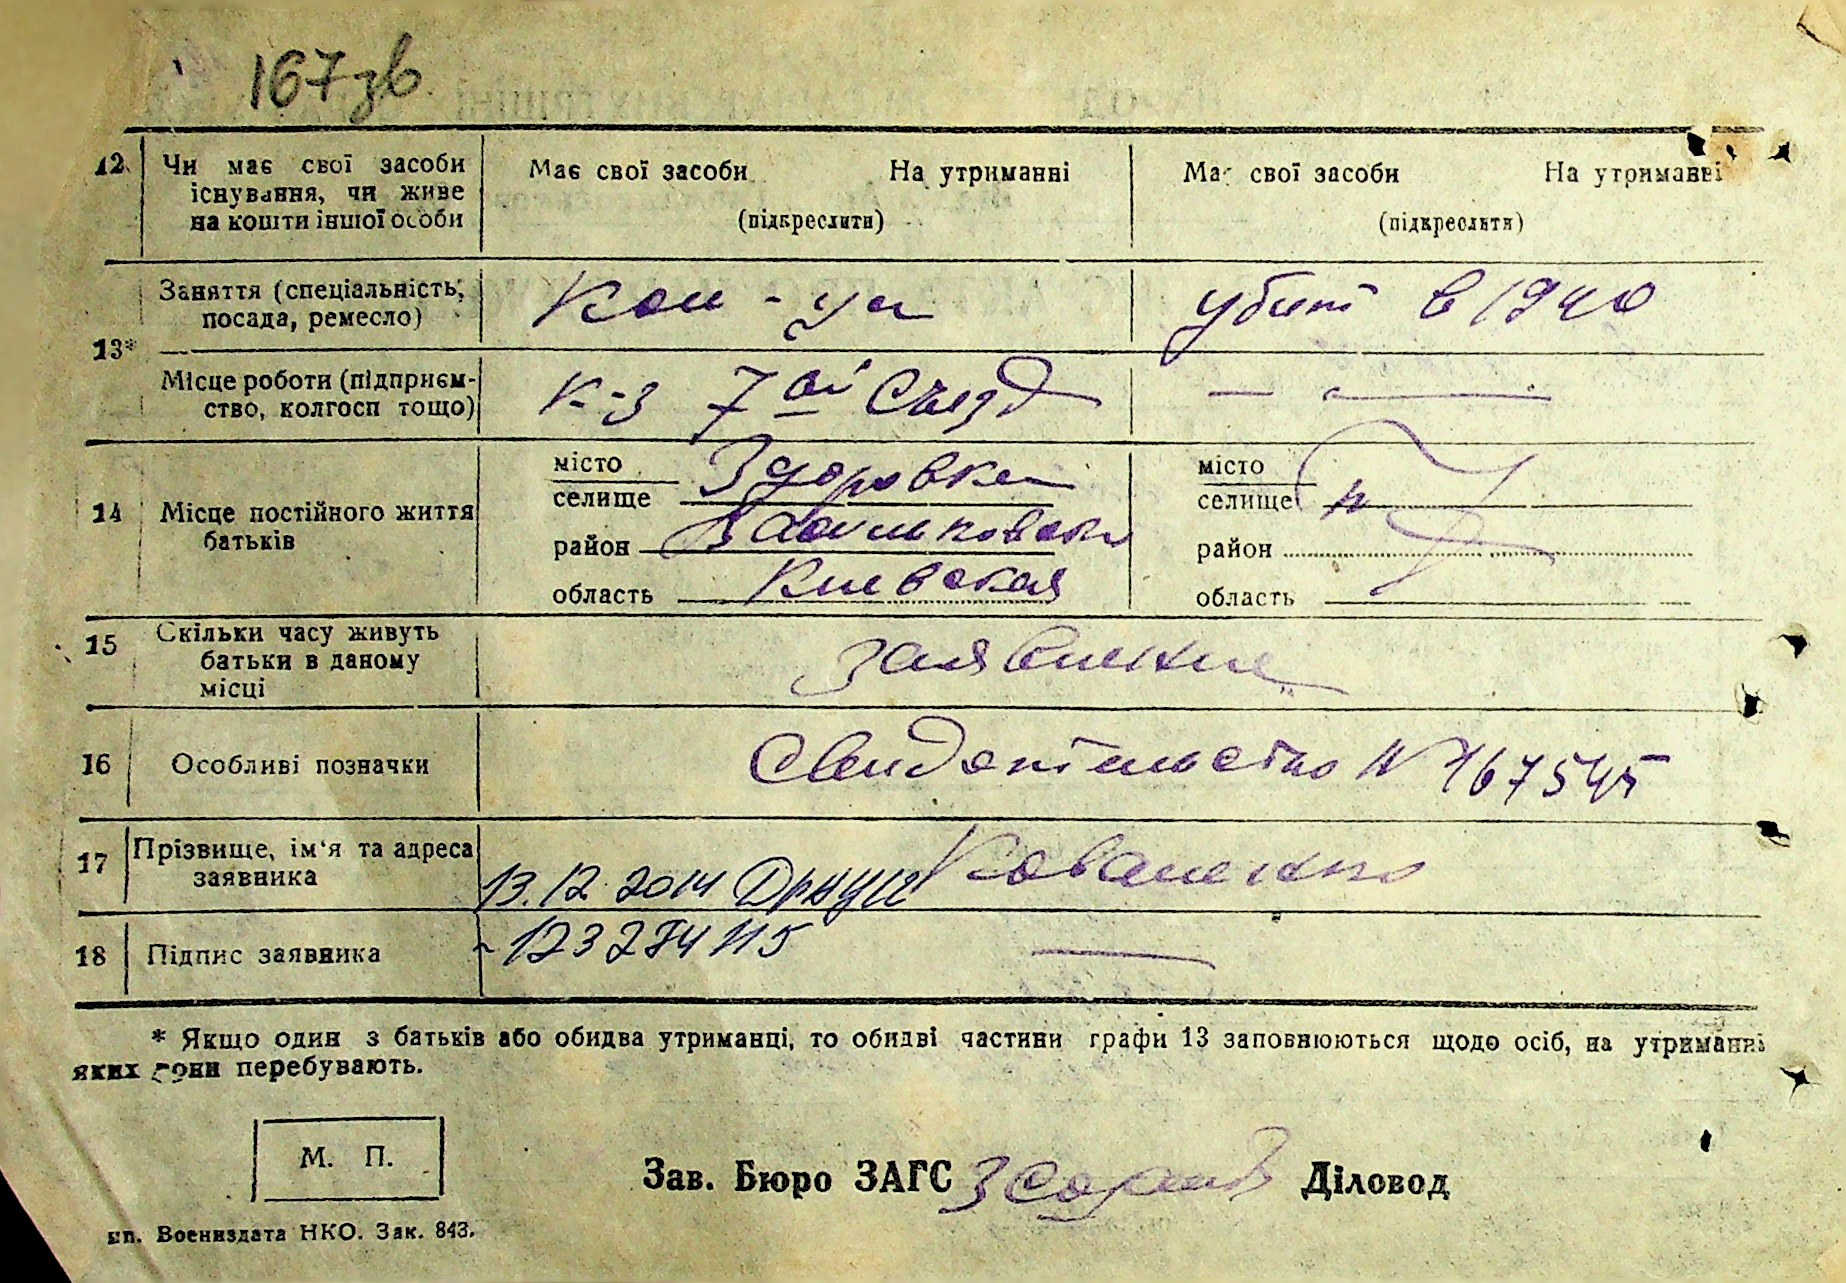 167зв
12 Чи має свої засоби існування, чи живе на кошти іншої особи
Має свої засоби На утриманні
(підкреслити)
Має свої засоби На утриманні
(підкреслити)
13* Заняття (спеціальність, посада, ремесло)
убит в 1940
Місце роботи (підприємство, колгосп тощо)
к-з 7ой Съезд
— —
14 Місце постійного життя батьків
місто
селище Здоровка
район Васильковский
область Киевская
місто
селище
район
область
15 Скільки часу живуть батьки в даному місці
16 Особливі позначки
Свидетельство № 167545
17 Прізвище, ім'я та адреса заявника
Коваленко
13.12.2014
18 Підпис заявника
—
* Якщо один з батьків або обидва утриманці, то обидві частини графи 13 заповнюються щодо осіб, на утриманні
яких вони перебувають.
М. П.
Зав. Бюро ЗАГС Діловод
ип. Воениздата НКО. Зак. 843.